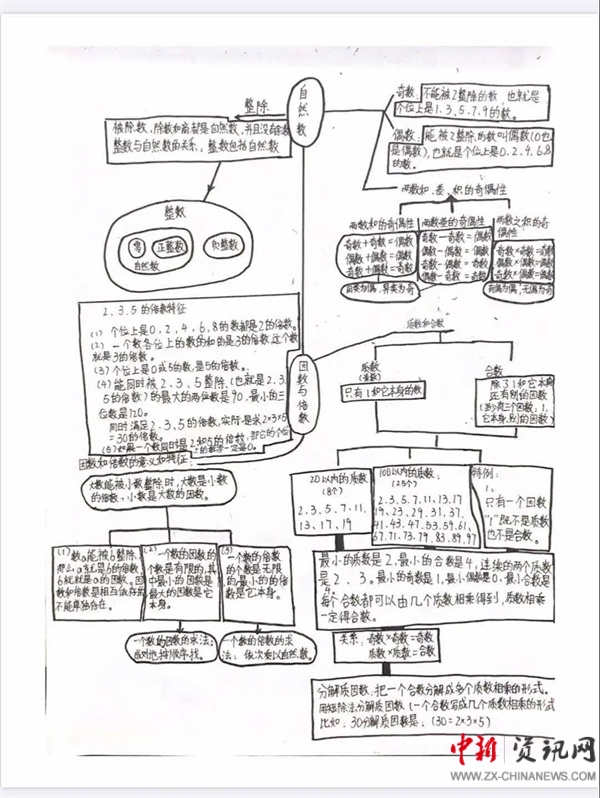 自然数
整除
被除数、除数和商都是自然数,并且没有余数
整数与自然数的关系,整数包括自然数
整数
零
正整数
负整数
自然数
奇数:不能被2整除的数,也就是
个位上是1、3、5、7、9的数。
偶数:能被2整除的数叫偶数(0也
是偶数),也就是个位上是0、2、4、6、8
的数。
两数和、差、积的奇偶性
两数和的奇偶性
奇数+奇数=偶数
偶数+偶数=偶数
奇数+偶数=奇数
两数差的奇偶性
奇数-奇数=偶数
偶数-偶数=偶数
奇数-偶数=奇数
偶数-奇数=奇数
同类为偶,异类为奇
两数之积的奇
偶性
奇数×奇数=奇数
偶数×偶数=偶数
奇数×偶数=偶数
有偶为偶,无偶为奇
因数与倍数
2、3、5的倍数特征
(1)个位上是0,2,4,6,8的数都是2的倍数。
(2)一个数各位上的数的和的是3的倍数,这个数
就是3的倍数。
(3)个位上是0或5的数,是5的倍数。
(4)能同时被2、3、5整除(也就是2、3、
5的倍数)的最大的两位数是90,最小的三
位数是120。
同时满足2、3、5的倍数,实际是求2×3×5
=30的倍数。
(5)如果一个数同时是2和5的倍数,那它的个位
上的数字一定是0。
因数和倍数的意义和特征:
大数能被小数整除时,大数是小数
的倍数,小数是大数的因数。
(1)数a能被b整除,
那么a就是b的倍数
b就是a的因数。因
数和倍数是相互依存的
不能单独存在。
(2)一个数的因数的
个数是有限的,其
中最小的因数是
最大的因数是它
本身。
(3)一个数的倍数
的个数是无限
的,最小的的倍
数是它本身。
一个数的因数的求法:
成对地按顺序找。
一个数的倍数的求
法:依次乘以自然数。
质数和合数
质数
(素数)
只有1和它本身的数
合数
除了1和它本身
还有别的因数
(至少有三个因数:1、
它本身、别的因数)
20以内的质数
(8个)
2、3、5、7、11、
13、17、19
100以内的质数:
(25个)
2、3、5、7、11、13、17
19、23、29、31、37、
41、43、47、53、59、61、
67、71、73、79、83、89、97
特例:
1、
只有一个因数
"1"既不是质数
也不是合数。
最小的质数是2,最小的合数是4,连续的两个质数
是2、3。最小的奇数是1,最小偶数是0,最小合数是
4。
每个合数都可以由几个质数相乘得到,质数相乘
一定得合数。
关系:奇数×奇数=奇数
质数×质数=合数
分解质因数:把一个合数分解成多个质数相乘的形式。
用短除法分解质因数(一个合数写成几个质数相乘的形式
比如:30分解质因数是:(30=2×3×5)
中新资讯网
WWW.ZX-CHINANEWS.COM